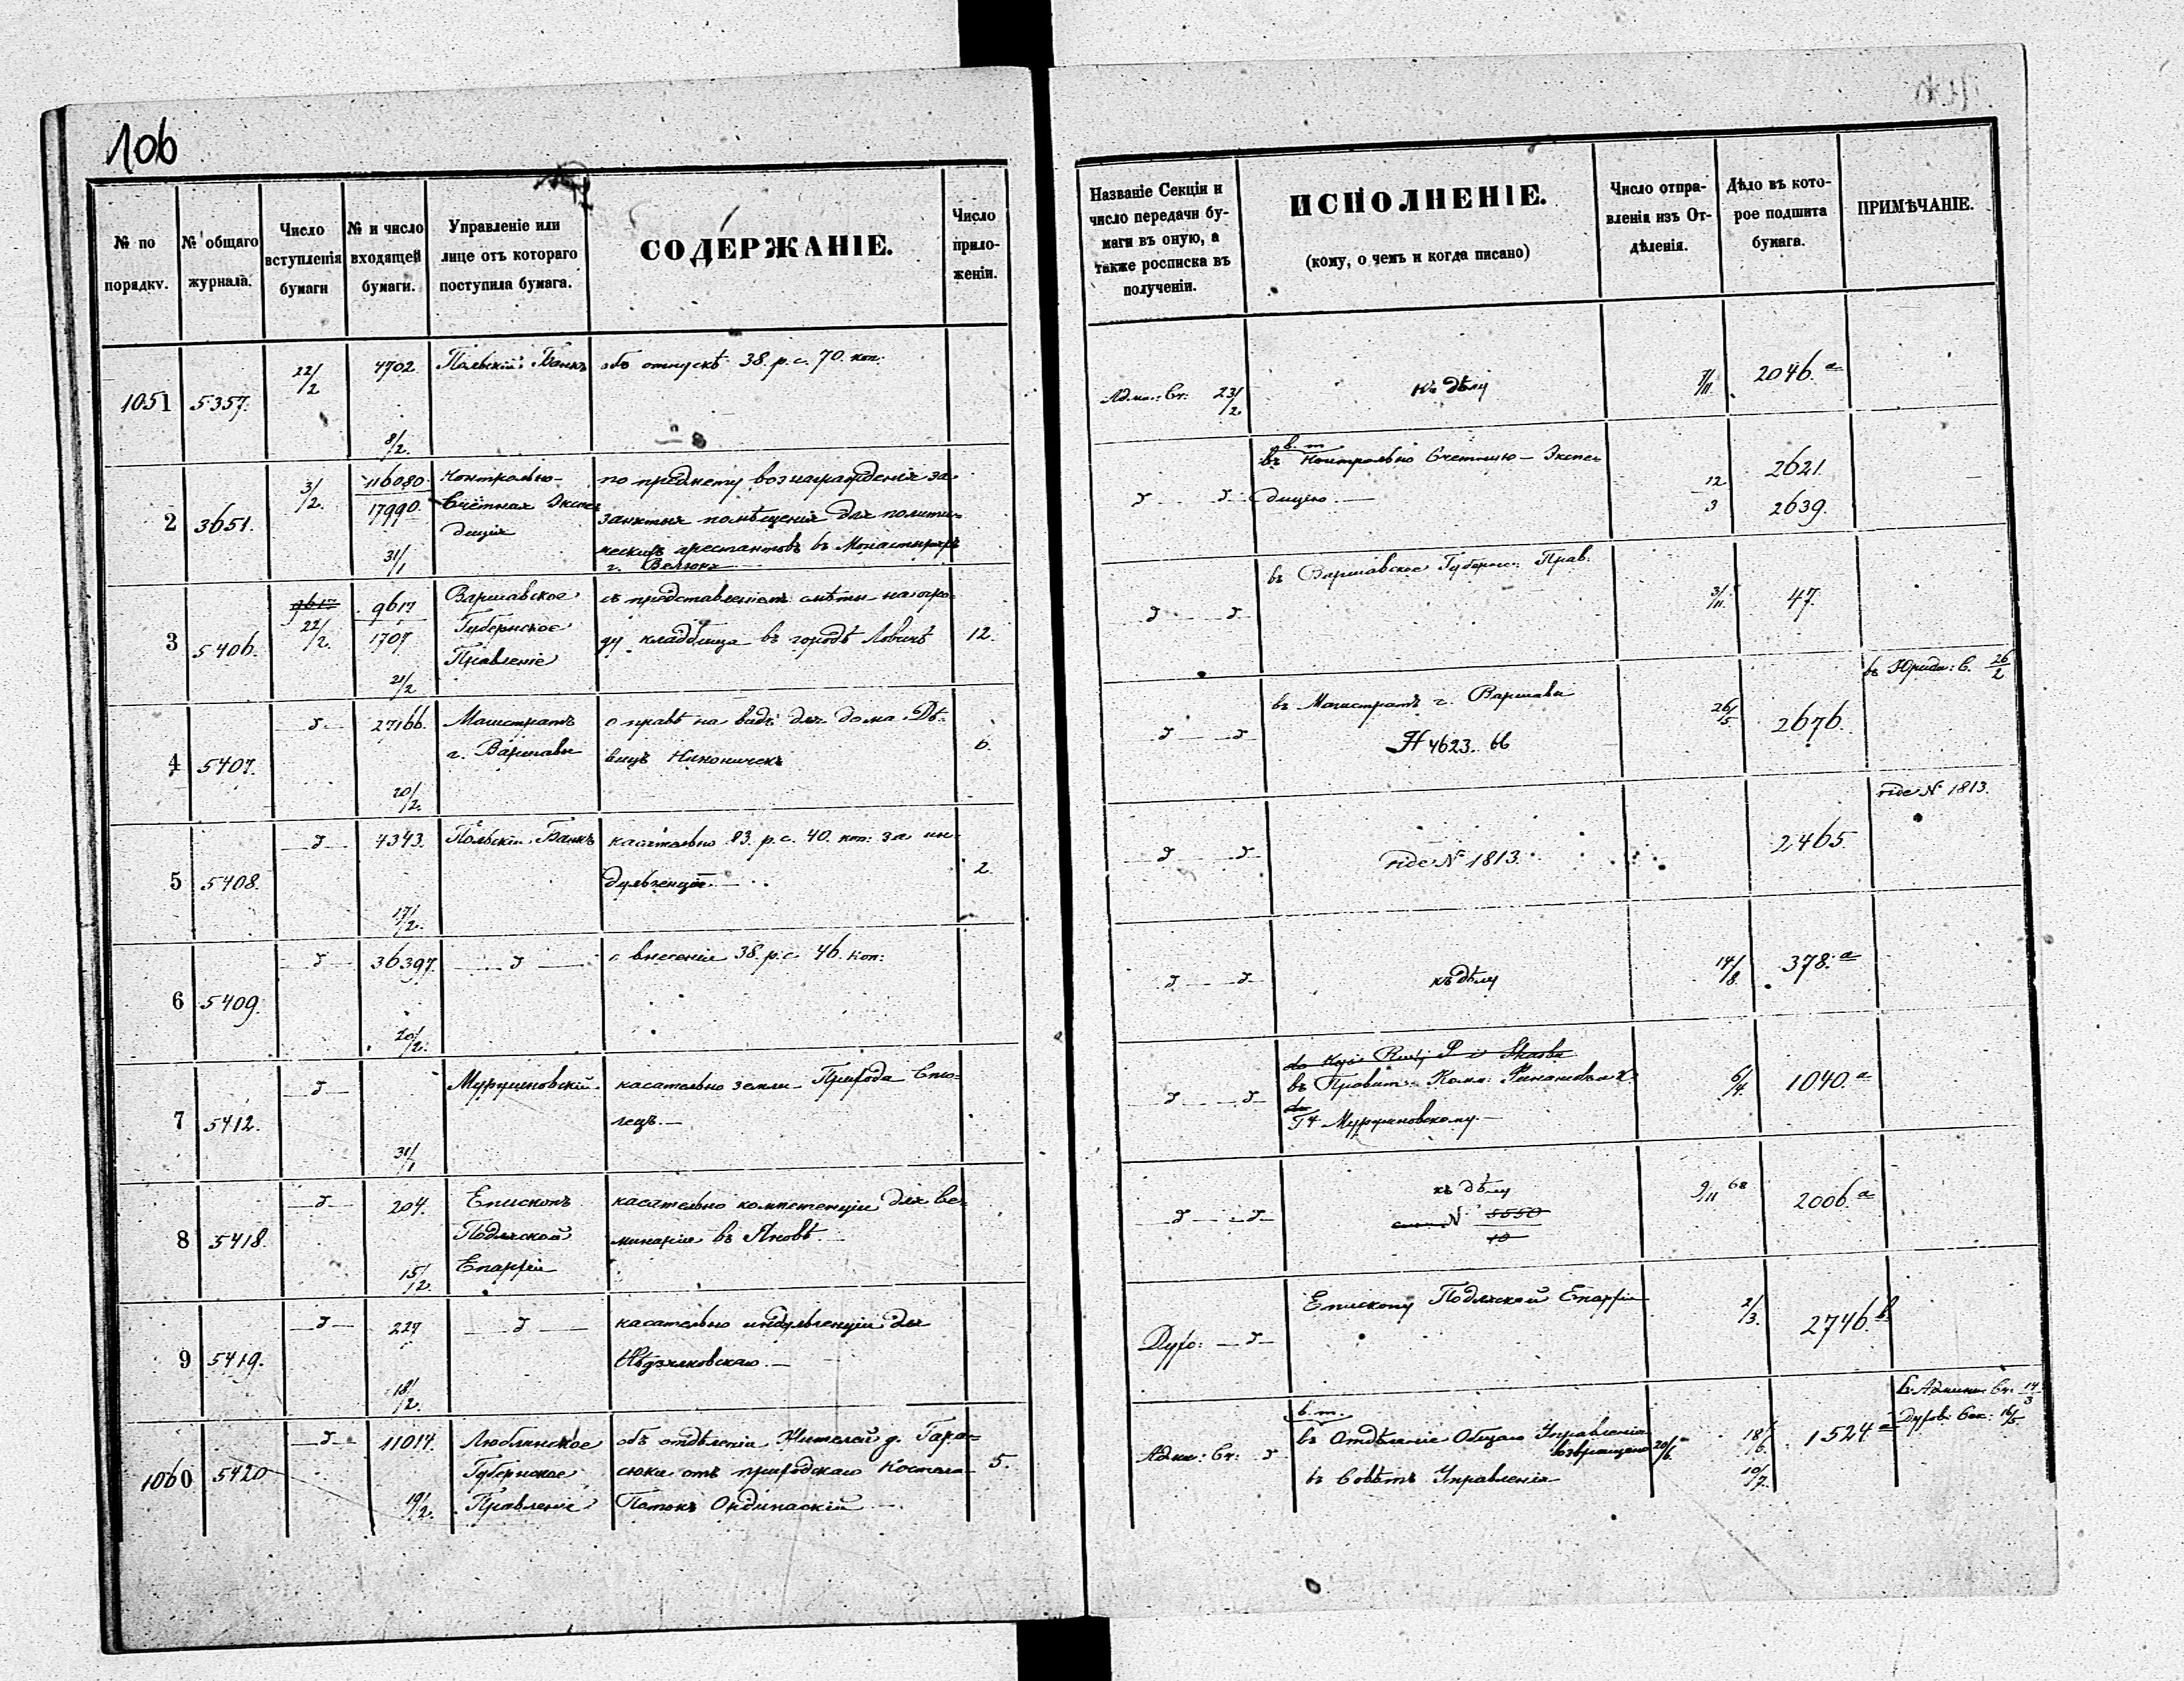 106
№ по порядку.
№ общаго журнала.
Число вступленія бумаги
№ и число входящей бумаги.
Управленіе или лице отъ котораго поступила бумага.
СОДЕРЖАНІЕ.
Число приложеніи.
Названіе Секціи и число передачи бумаги въ оную, а также росписка въ полученіи.
ИСПОЛНЕНІЕ.
(кому, о чемъ и когда писано)
Число отправленія изъ Отдѣленія.
Дѣло въ которое подшита бумага.
ПРИМѢЧАНІЕ.
1051 5357. 22/2 4702 8/2. Польскій Банкъ
объ отпускѣ 38. р. с. 70. коп.
23/2. къ дѣлу 7/11. 2046. а
2 3651. 3/2. 116080 17990. 31/1
Контрольно-
Счетная Экспе
диція
по предмету вознагражденія за
занятыя помѣщенія для полити-
ческихъ арестантовъ въ Монастырѣ
г. Велюнѣ
в. т.
въ Контрольно Счетную - Экспе
дицію. —
12/3 2621. 2639.
3 5406. 9617 22/2. 9617 1707 21/2
Варшавское
Губернское
Правленіе
съ представленіемъ смѣты на огра-
ду кладбища въ городѣ Ловичѣ 12.
въ Варшавское Губернс. Прав.
3/11. 47.
4 5407. 27166. 20/2.
Магистратъ
г. Варшавы
о правѣ на видъ для дома Дѣ-
вицъ 6.
въ Магистратъ г. Варшавы
№ 4623. 66
26/5 2676.
въ Юрид: С. 26/2
5 5408. 4343. 17/2. Польскій Банкъ
касательно 83. р. с. 40. коп: за ин-
дульгенціи. — 2.
vide № 1813. 2465.
vide № 1813.
6 5409. 36397. 20/2.
о внесеніи 38. р. с. 46. коп:
къ дѣлу 14/8. 378. а
7 5412. 31/1
касательно земли
лецъ. —
въ Правит. Комм: Финансовъ
6/4. 1040. а
8 5418. 204. 15/2.
Епископъ
Подляской
Епархіи
касательно компетенціи для се-
минаріи въ Яновѣ
къ дѣлу
№ 5550
9/11 68 2006. а
9 5419. 227 18/2.
касательно индульгенціи для
Духо:
Епископу Подляской Епархіи
2/3. 2746. в.
1060 5420 11014. 19/2.
Люблинское
Губернское
Правленіе
объ отдѣленіи Жителей д. Тара-
сюки отъ приходскаго Костела
Потокъ Ординаскій 5.
в. т.
въ Отдѣленіе Общаго Управленія
возвращено 20/6
въ Совѣтъ Управленія
18/6. 10/7. 1524 а
въ Админ. Ст. 14/3
Духов: Сек: 16/5